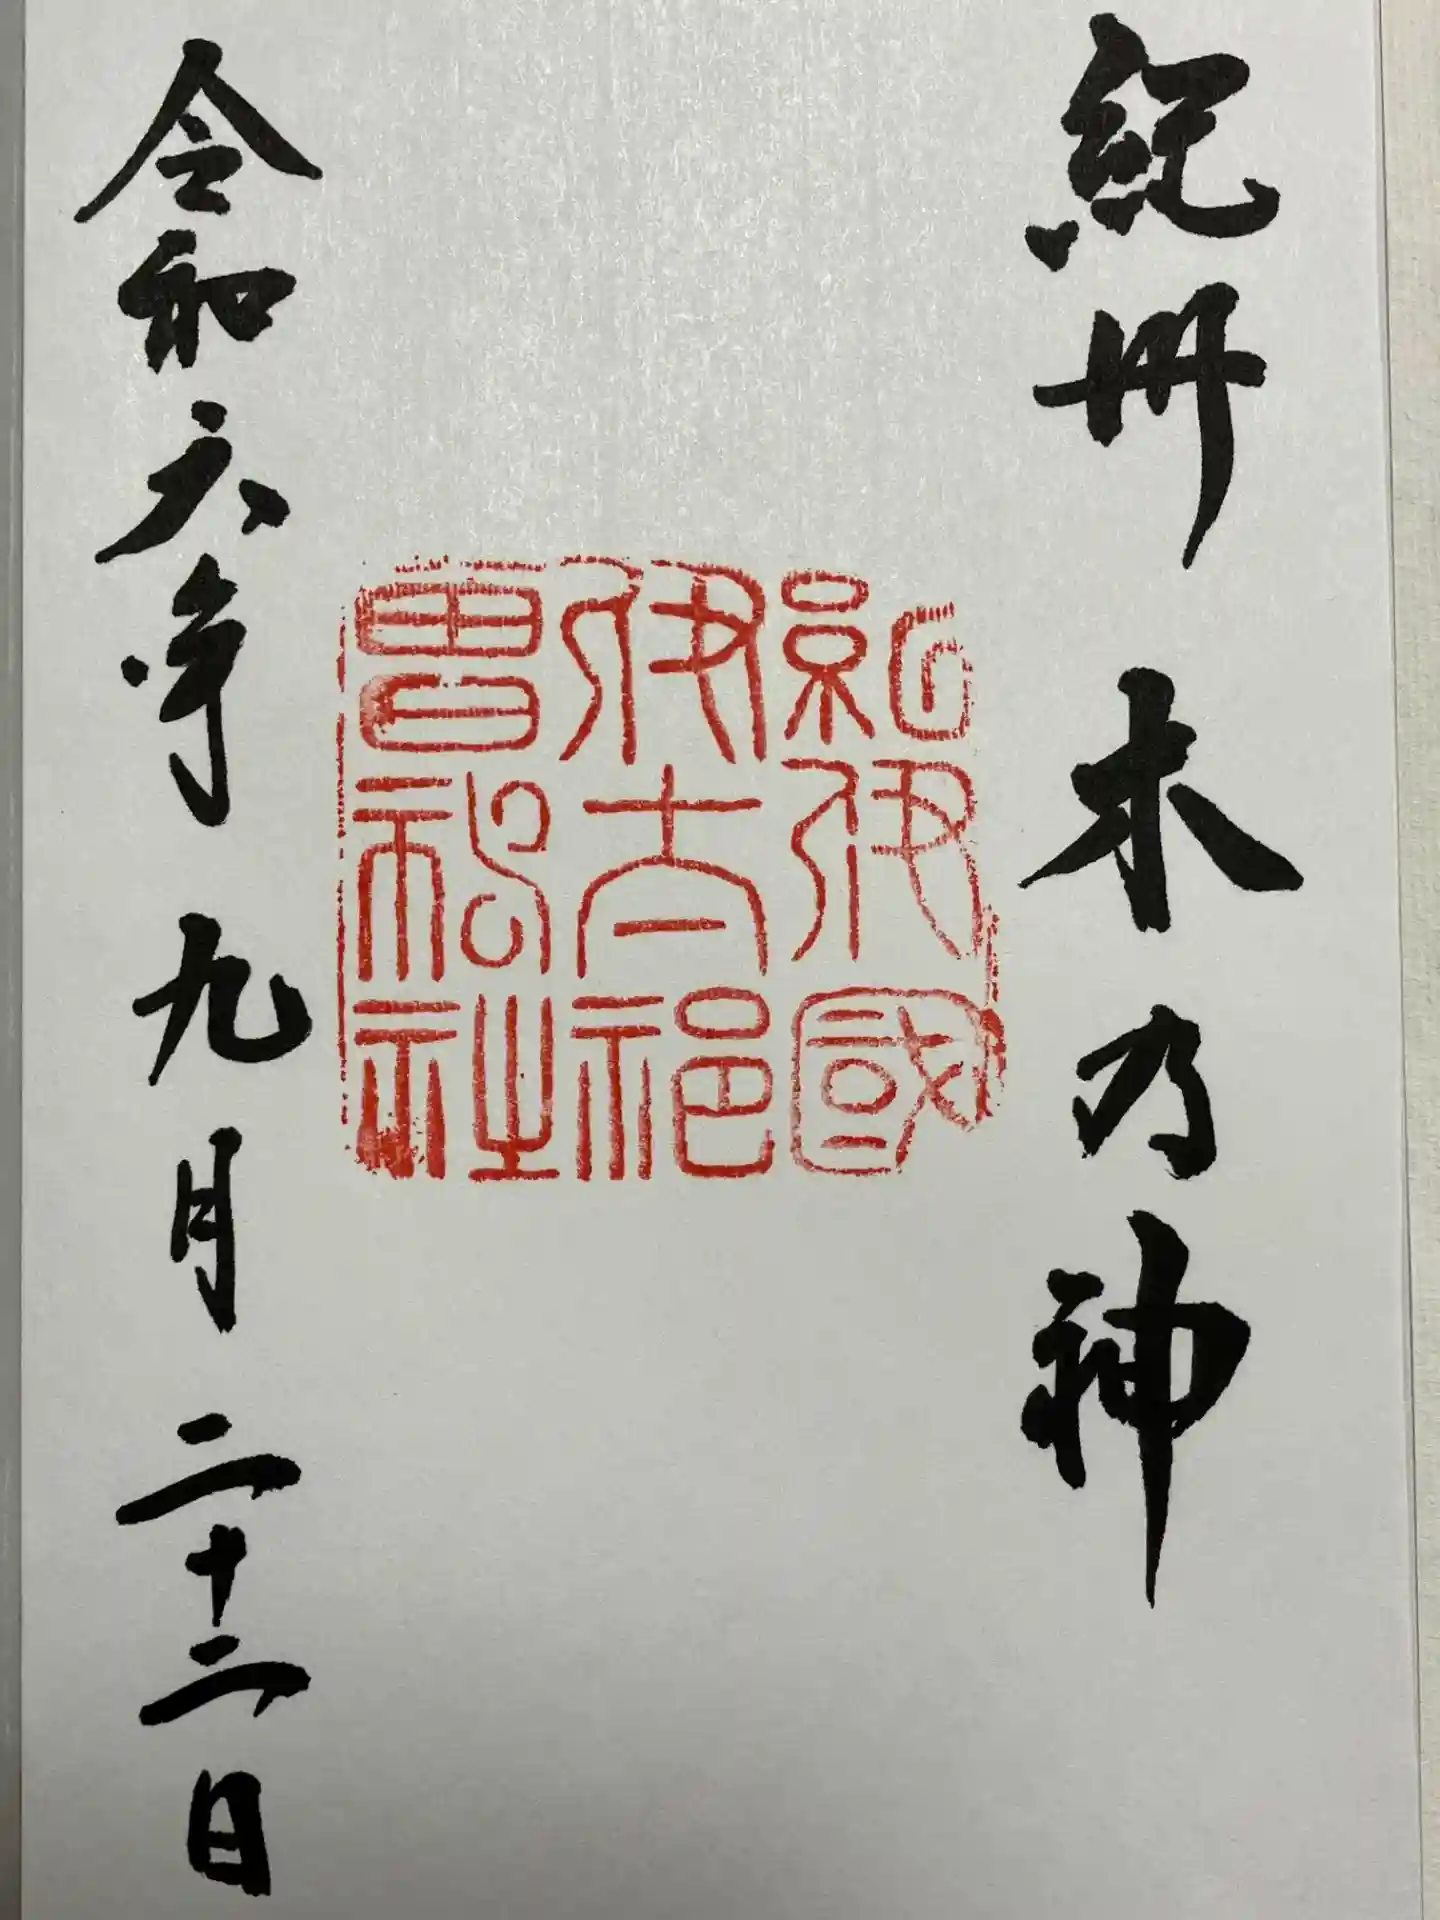 紀州 木乃神
紀伊國
伊太祁
曽神社
令和六年 九月 二十二日